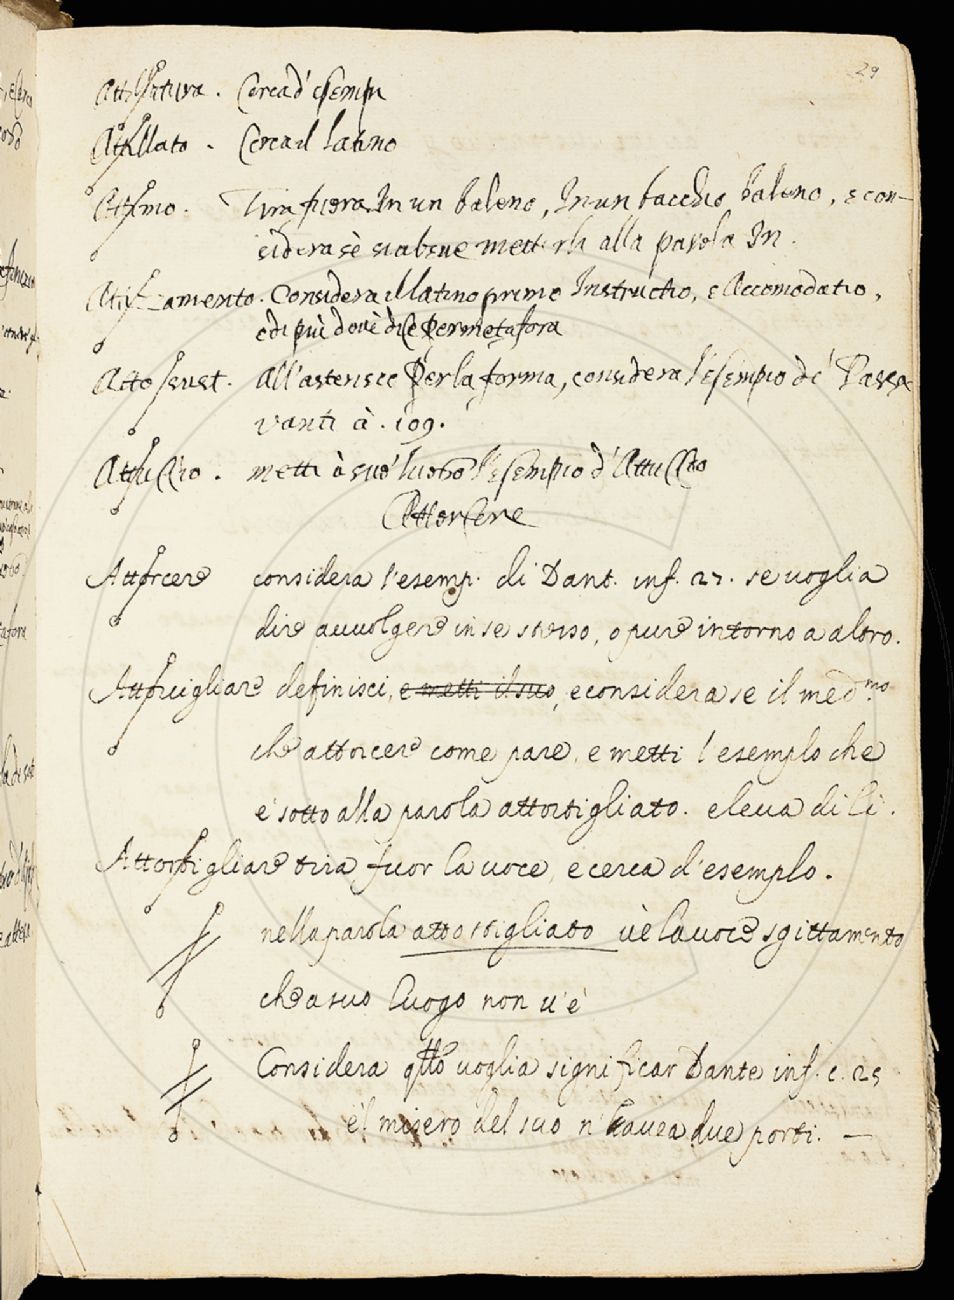 29
Attillatura. Cerca d'esempii
Attillato. Cerca il latino
Attimo. Tira fuora In un baleno, In un bacchio baleno, e con-
sidera sè sia bene metterli alla parola In.
Attizzamento. Considera il latino primo Instructio, e Accomodatio,
e di più dov'è dice per metafora
Atto sust. all'asterisco per la forma, considera l'esempio de' Passa
vanti à. 109.
Attuffio. metti à suo luogo l'esempio d'Attuffato
Attorcere
Attorcere considera l'esemp. di Dant. inf. 27. se voglia
dire avvolgere in se stesso, o pure intorno a altro.
Attorcigliare definisci, e metti il suo, e considera se il med.mo
che attorcere come pare, e metti l'esemplo che
e' sotto alla parola attortigliato. e leva di lì.
Attortigliare tira fuor la voce, e cerca d'esemplo.
nella parola attortigliato v'è la voce sgittamento
che a suo luogo non v'è
Considera qtto voglia significar Dante inf. c. 25
e'l misero del suo n'havea due porti. —